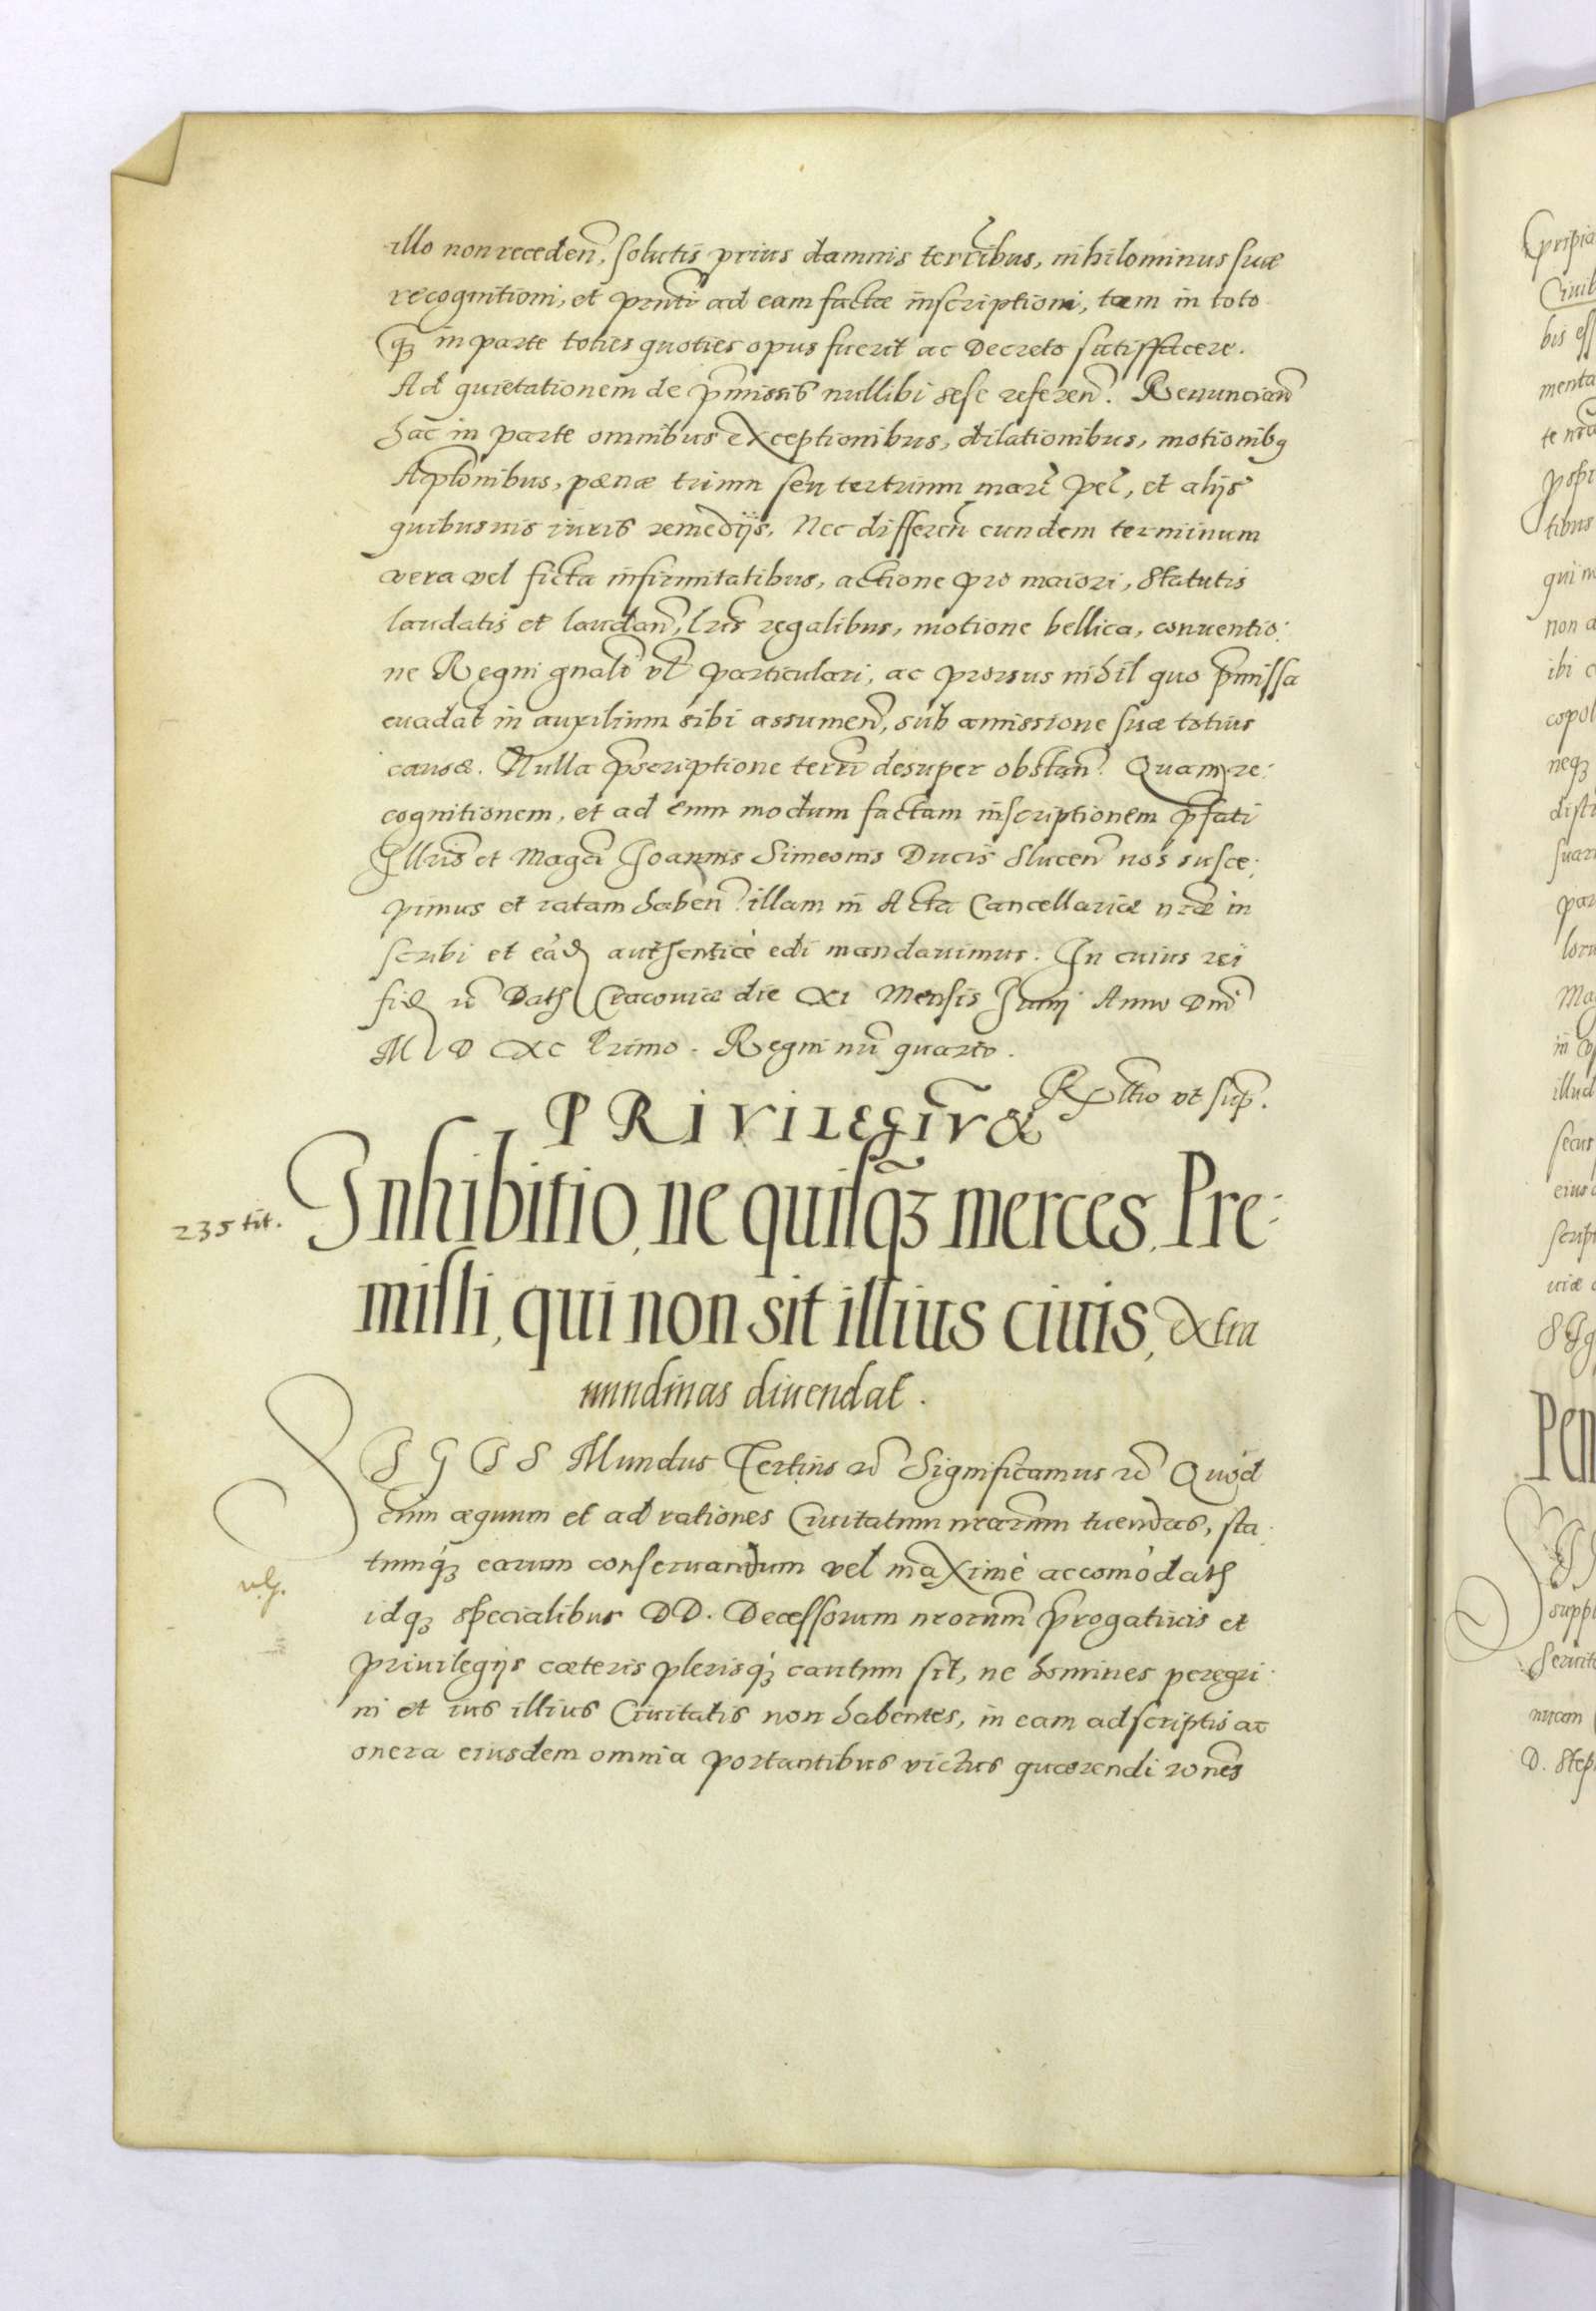 illo non receden̄, solutis prius damnis terrībus, nihilominus suæ
recognitioni, et pn̄ti ad eam factæ inscriptioni, tam in toto
q̄ȝ in parte toties quoties opus fuerit ac Decreto satisfacere.
Ad quietationem de p̄missis nullibi sese referen̄. Renuncian̄
hac in parte omnibus exceptionibus, dilationibus, motionibꝫ
Applōnibus, pœnæ trium seu tertrium mar̄ pec̄, et alijs
quibusuis iuris remedijs. Nec differen̄ eundem terminum
vera vel ficta infirmitatibus, actione pro maiori, statutis
laudatis et laudan̄, lr̄is regalibus, motione bellica, conuentio:
ne Regni gn̄ali vl̄ particulari, ac prorsus nihil quo p̄missa
euadat in auxilium sibi assumen̄, sub amissione suæ totius
causæ. Nulla p̄scriptione terr̄ desuper obstan̄. Quam re:
cognitionem, et ad eum modum factam inscriptionem p̄fati
Illris et Maḡci Joannis Simeonis Ducis Slucen̄ nos susce:
pimus et ratam haben̄ illam in Acta Cancellariæ nr̄æ in
scribi et ead̄ authenticè edi mandauimus. In cuius rei
fid̄ rc̄ Dath Cracouiæ die XI Mensis Junij Anno Dn̄i
M D XC Primo. Regni nr̄i quarto.
Rx̄ltio vt sup̄.
PRIVILEGIV̄ &
235 tit. Inhibitio, ne quisq̄ȝ merces, Pre:
misli, qui non sit illius ciuis, extra
nundinas diuendat.
SIGISMundus Tertius rc̄ Significamus rc̄ Quod
cum æquum et ad rationes Ciuitatum nr̄arum tuendas, sta
tumqȝ earum conseruandum vel maximè accomodath
idqȝ specialibus DD. Decessorum nr̄orum p̄rogatiuis et
priuilegijs cæteris plerisqȝ cautum sit, ne homines peregri
ni et ius illius Ciuitatis non habentes, in eam adscriptis ac
onera eiusdem omnia portantibus victus quærendi rōnes